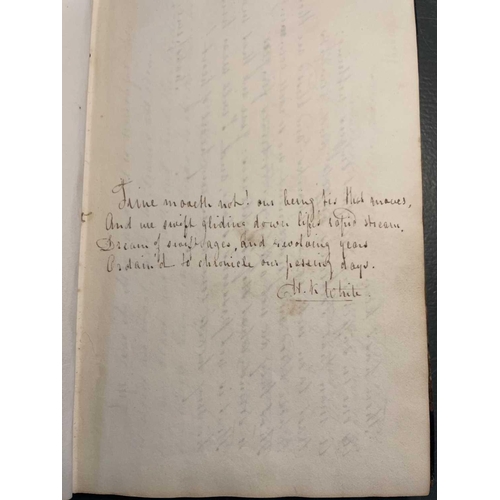 Time moveth not! our being tis that moves,
And we swift gliding down life's rapid stream,
Dream of swift ages, and revolving years
Ordain'd to chronicle our passing days.
H. K. White